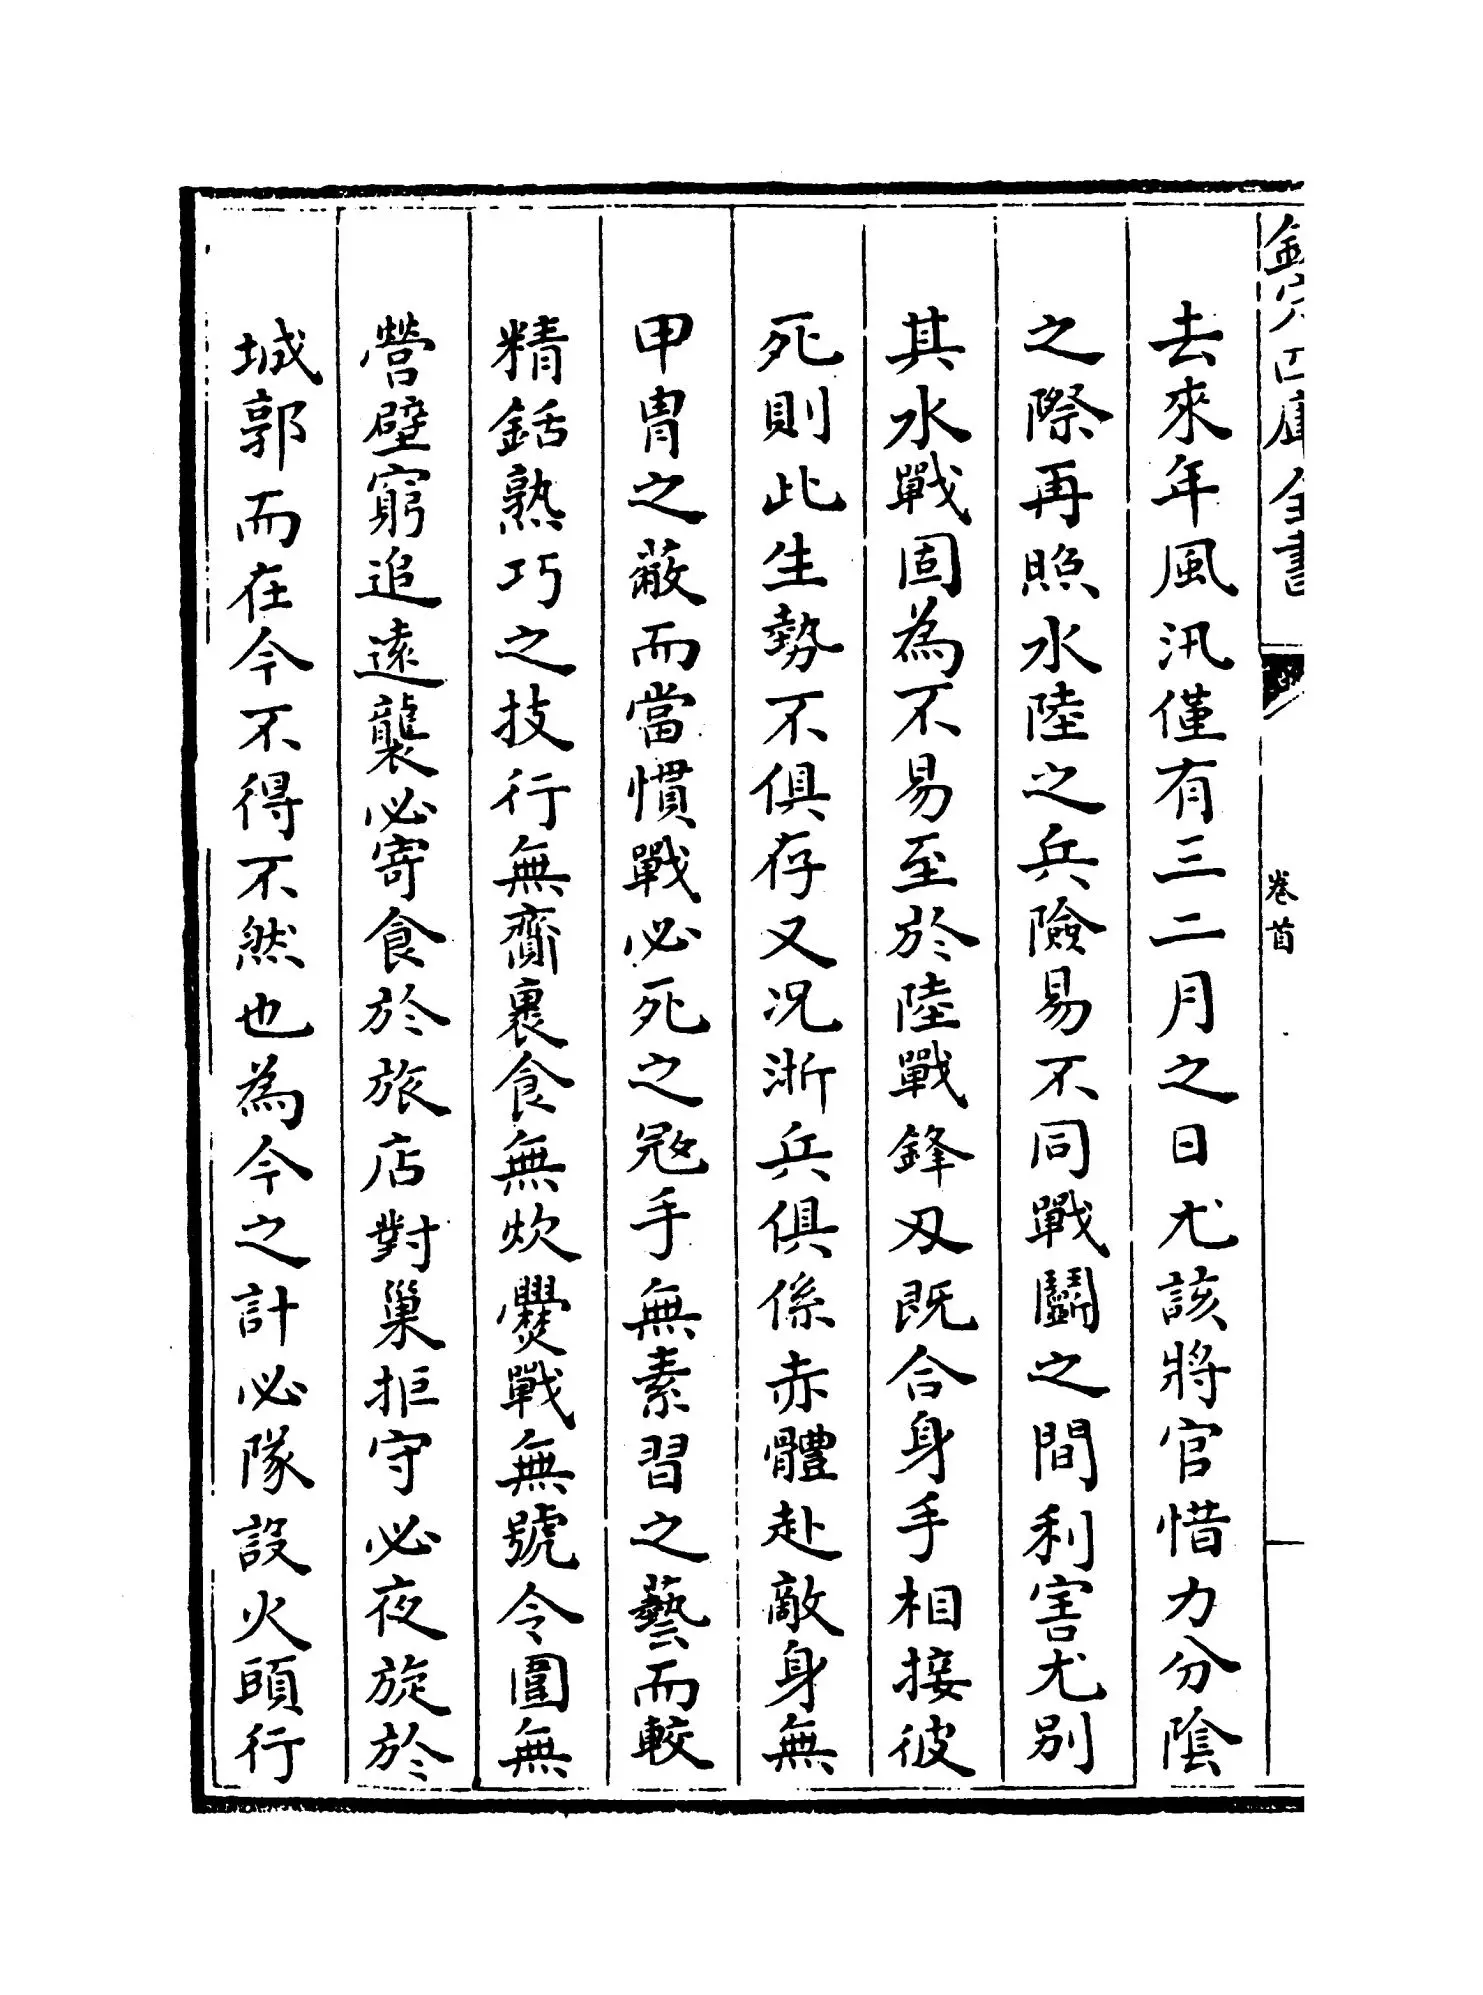 欽定四庫全書
卷首
去來年風汛僅有三二月之日尤該將官惜力分陰
之際再照水陸之兵險易不同戰鬬之間利害尤別
其水戰固為不易至於陸戰鋒刃既合身手相接彼
死則此生勢不俱存又况浙兵俱係赤體赴敵身無
甲胄之蔽而當慣戰必死之宼手無素習之藝而較
精銛熟巧之技行無齎裹食無炊爨戰無號令圍無
營壁窮追遠襲必寄食於旅店對巢拒守必夜旋於
城郭而在今不得不然也為今之計必隊設火頭行